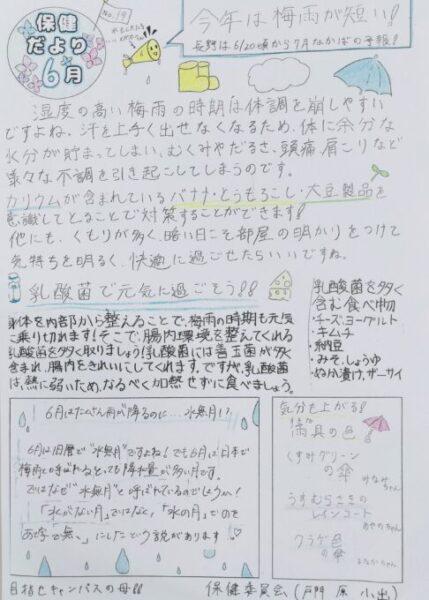 No.19
保健
だより
6月
今年は梅雨が短い!!
長野は6/20頃から7月なかばの予報!
湿度の高い梅雨の時期は体調を崩しやすい
ですよね。汗を上手く出せなくなるため、体に余分な
水分が貯まってしまい、むくみやだるさ、頭痛、肩こりなど
様々な不調を引き起こしてしまうのです。
カリウムが含まれているバナナ・とうもろこし・大豆製品を
意識してとることで対策することができます!!
他にも、くもりが多く、暗い日こそ部屋の明かりをつけて
気持ちを明るく、快適に過ごせたらいいですね。
乳酸菌で元気に過ごそう!!
体を内部から整えることで、梅雨の時期も元気
に乗り切れます!そこで、腸内環境を整えてくれる
乳酸菌を多く取りましょう!乳酸菌には善玉菌が多く
含まれ、腸内をきれいにしてくれます。ですが、乳酸菌
は、熱に弱いため、なるべく加熱せずに食べましょう。
乳酸菌を多く
含む食べ物
・チーズ・ヨーグルト
・キムチ
・納豆
・みそ、しょうゆ
・ぬか漬け、ザーサイ
6月はたくさん雨が降るのに…水無月!?
6月は旧暦で"水無月"ですよね!でも6月は日本で
梅雨とも呼ばれるとっても降水量が多い月です。
ではなぜ"水無月"と呼ばれているのでしょうか!
「水がない月」ではなく、「水の月」でので
あて字で無、にしたという説があります!
気分を上げる!
雨具の色
くすみグリーン
の傘
みなみちゃん
うすむらさきの
レインコート
あやのちゃん
クラゲ色
の傘
まなかちゃん
目指せキャンパスの母!!
保健委員会(戸門 原 小出)